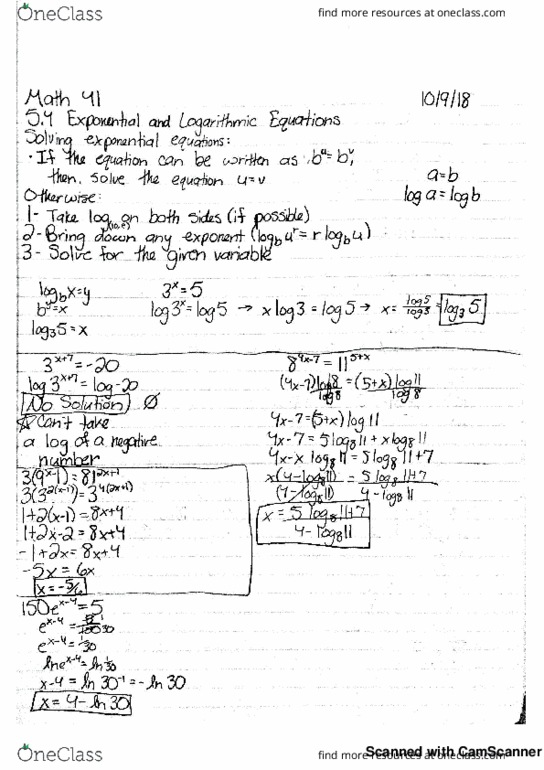 OneClass
find more resources at oneclass.com
Math 41
10/9/18
5.4 Exponential and Logarithmic Equations
Solving exponential equations:
· If the equation can be written as b^u = b^v,
then, solve the equation u=v
a=b
log a = log b
Otherwise:
1- Take log on both sides (if possible)
2- Bring down any exponent (log_b u^r = r log_b u)
3- Solve for the given variable
log_b x=y
b^y=x
log_3 5 = x
3^x = 5
log 3^x = log 5 → x log 3 = log 5 → x = log 5 / log 3 = log_3 5
3^(x+7) = -20
log 3^(x+7) = log -20
No Solution ∅
☆ Can't take
a log of a negative
number
8^(4x-7) = 11^(5+x)
(4x-7) log 8 / log 8 = (5+x) log 11 / log 8
4x-7 = (5+x) log 11
4x-7 = 5 log_8 11 + x log_8 11
4x - x log_8 11 = 5 log_8 11 + 7
x(4 - log_8 11) / (4 - log_8 11) = 5 log_8 11 + 7 / 4 - log_8 11
x = 5 log_8 11 + 7 / 4 - log_8 11
3(9^(x-1)) = 81^(2x+1)
3(3^(2(x-1))) = 3^(4(2x+1))
1+2(x-1) = 8x+4
1+2x-2 = 8x+4
-1+2x = 8x+4
-5x = 6x
x = -5/6
150e^(x-4) = 5
e^(x-4) = 30
e^(x-4) = 1/30
ln e^(x-4) = ln 1/30
x-4 = ln 30^-1 = -ln 30
x = 4 - ln 30
Scanned with CamScanner
OneClass
find more resources at oneclass.com